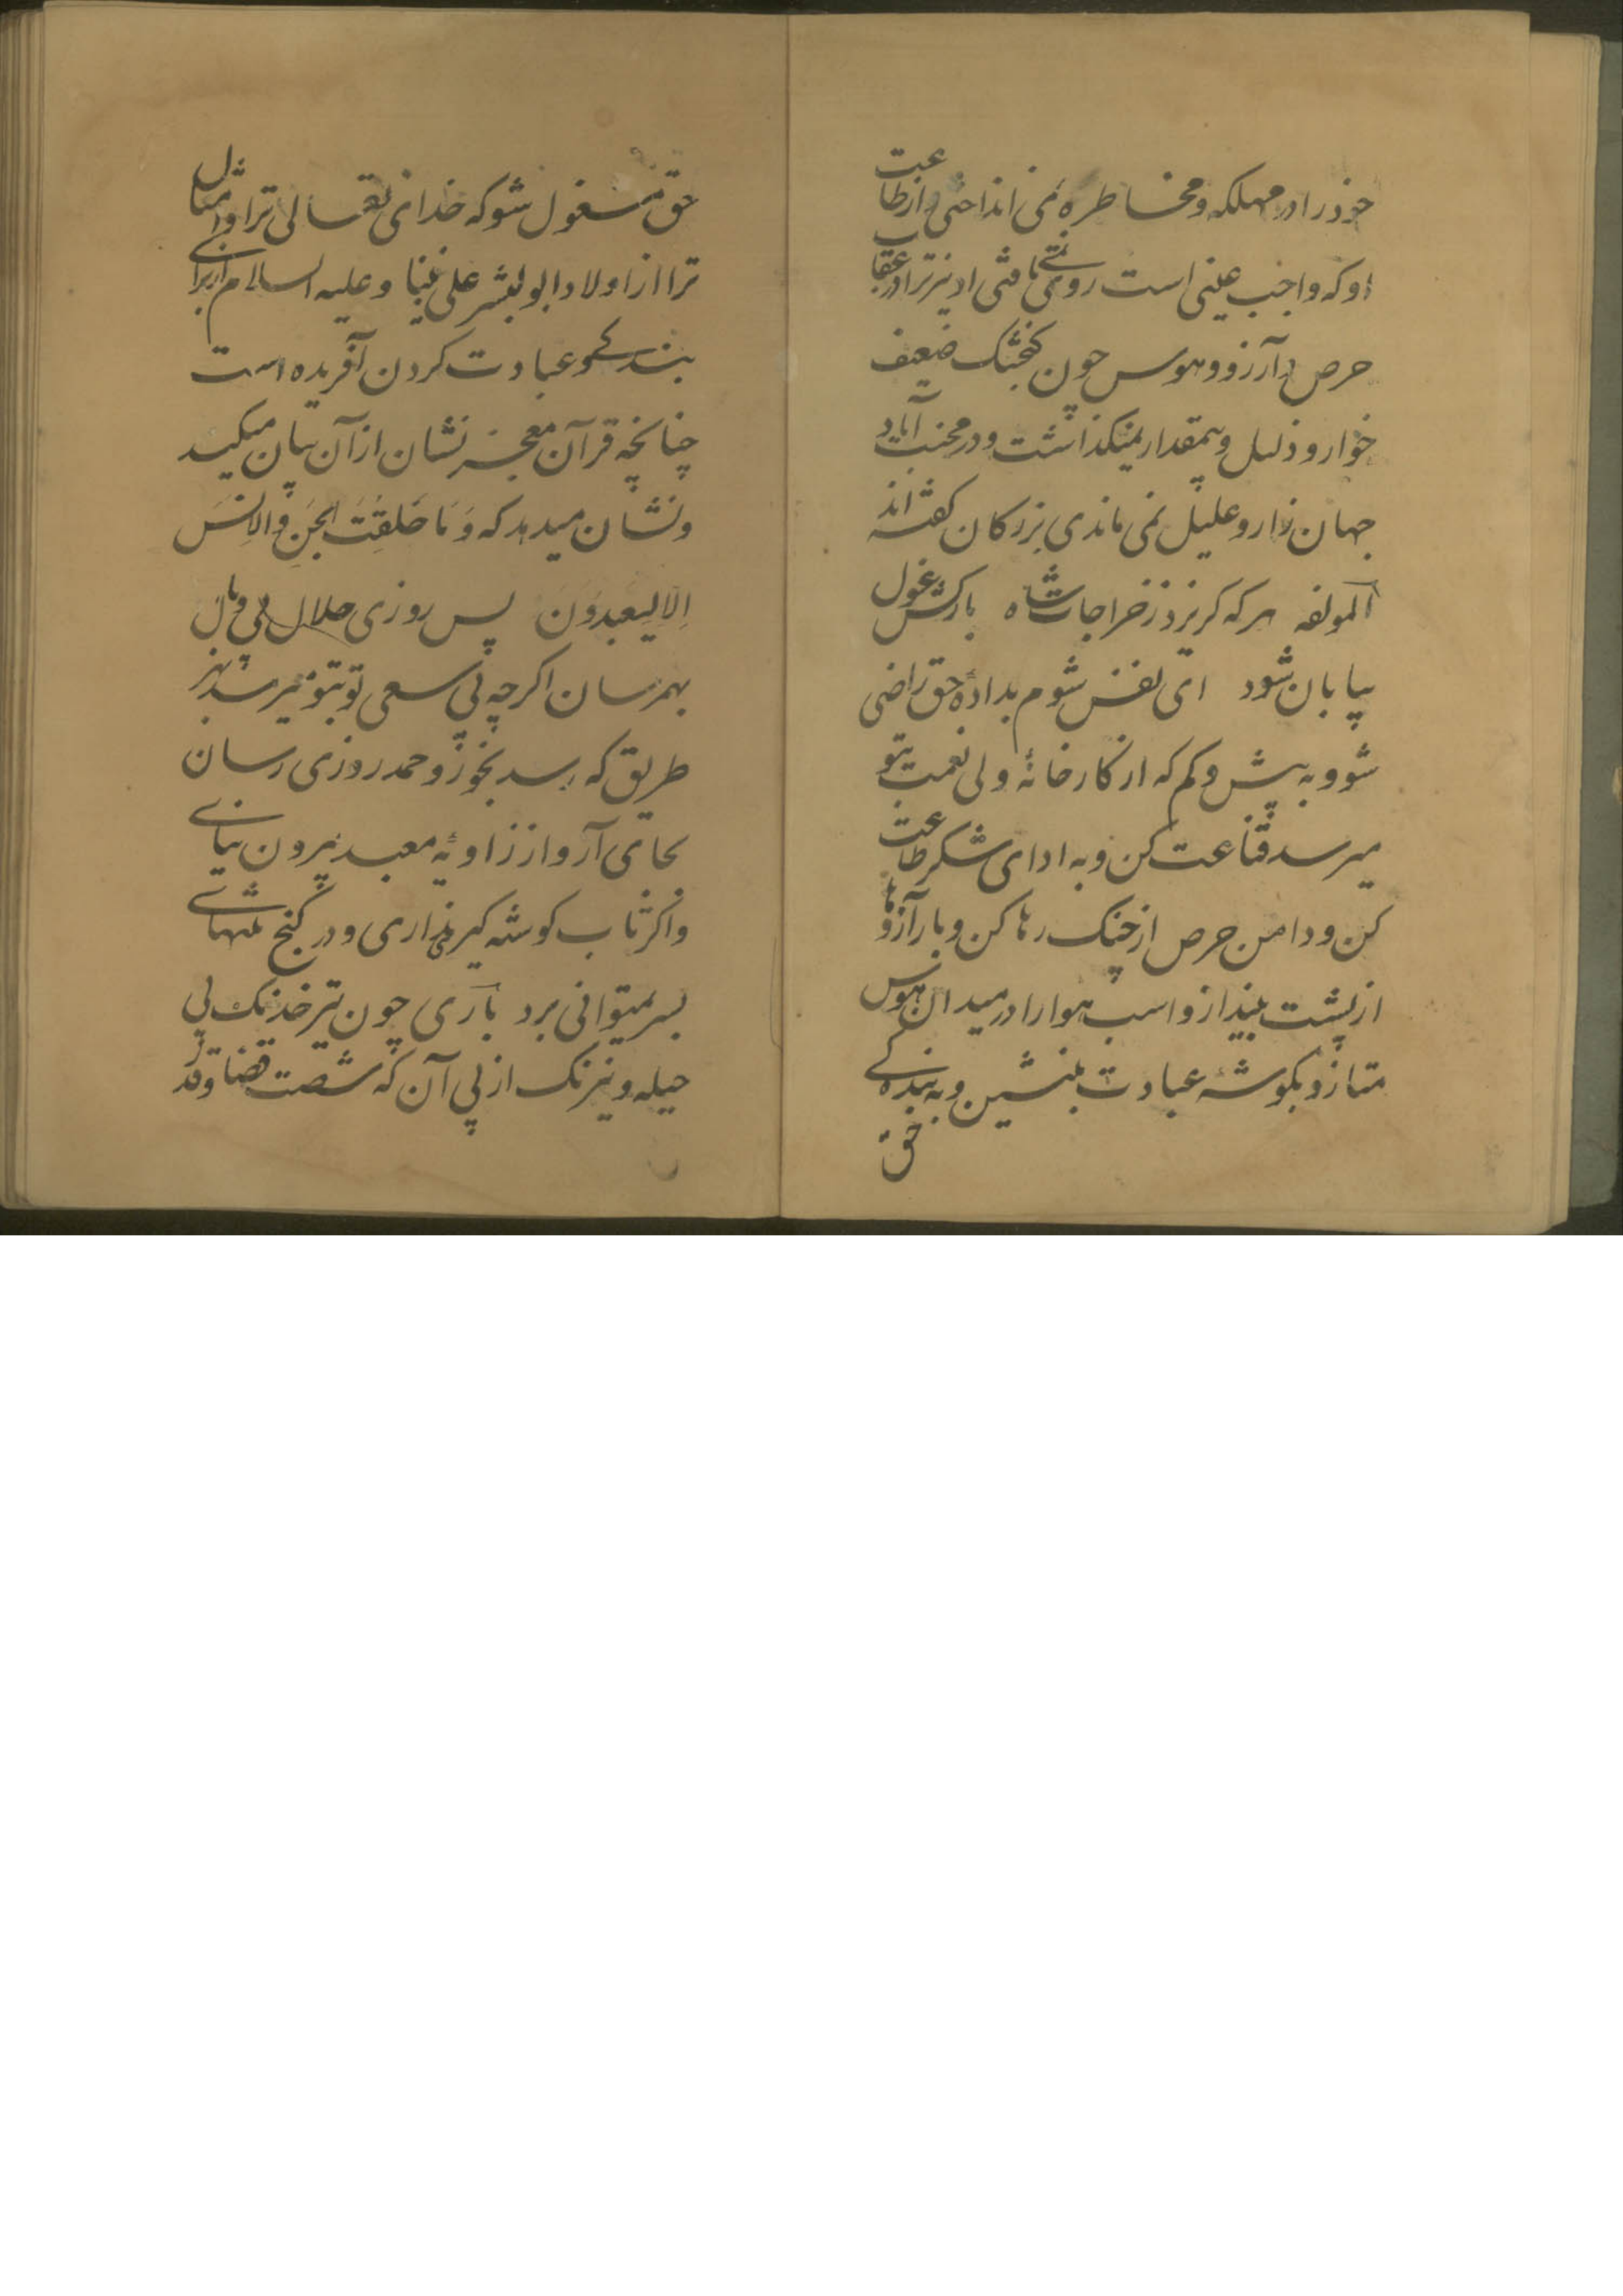 خود را در مهلکه و مخاطره نمی انداختی و از طاعت
او که واجب عینی است روی نمی تافتی او نیز ترا در عقاب
حرص و آرزو و هوس چون کنجشک ضعیف
خوار و ذلیل و بیمقدار نمیکذاشت و در محنت آباد
جهان زار و علیل نمی ماندی بزرکان کفته اند
المولفه هر که کریزد ز خراجات شاه بارکش غول
بیابان شود ای نفس شوم بدادهٔ حق راضی
شو و به بیش و کم که از کارخانهٔ ولی نعمت بتو
میرسد قناعت کن و به ادای شکر طاعت
کن و دامن حرص از چنک رها کن و بار آرزو ها
از پشت بینداز و اسب هوا را در میدان هوس
متاز و بکوشه عبادت بنشین و به بندکے
حق
حق مشغول شو که خدای تعالی ترا و امثال
ترا از اولاد ابوالبشر علی نبینا و علیه السلام از برای
بندکے و عبادت کردن آفریده است
چنانچه قرآن معجز نشان از آن بیان میکند
و نشان میدهد که وَمَا خَلَقتُ الجِنَ وَالاِنسَ
اِلا لِیَعبدُوَن پس روزی حلال بی وبال
بهمرسان اکرچه بی سعی تو بتو میرسد بهر
طریق که رسد بخور و حمد روزی رسان
بجای آر و از زاویهٔ معبد بیرون میاے
و اکر تاب کوشه کیری نداری و در کنج تنهاے
بسر نمیتوانی برد باری چون تیر خدنک بی
حیله و نیرنک از پی آن که شصت قضا و قدر